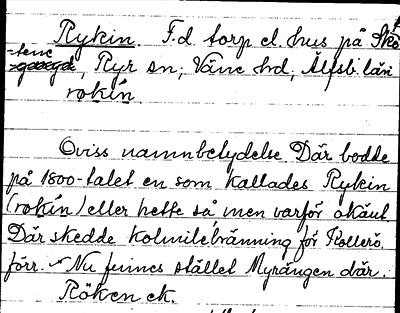 Rykin. F.d. torp el. hus på Skö
-tene, Ryr sn, Väne hrd, Älfsb. län
rokín
Oviss namnbetydelse Där bodde
på 1800-talet en som kallades Rykin
(rokín) eller hette så men varför okänt.
Där skedde kolmilebränning för Kollerö
förr. Nu finnes stället Myrängen där.
Röken ek.